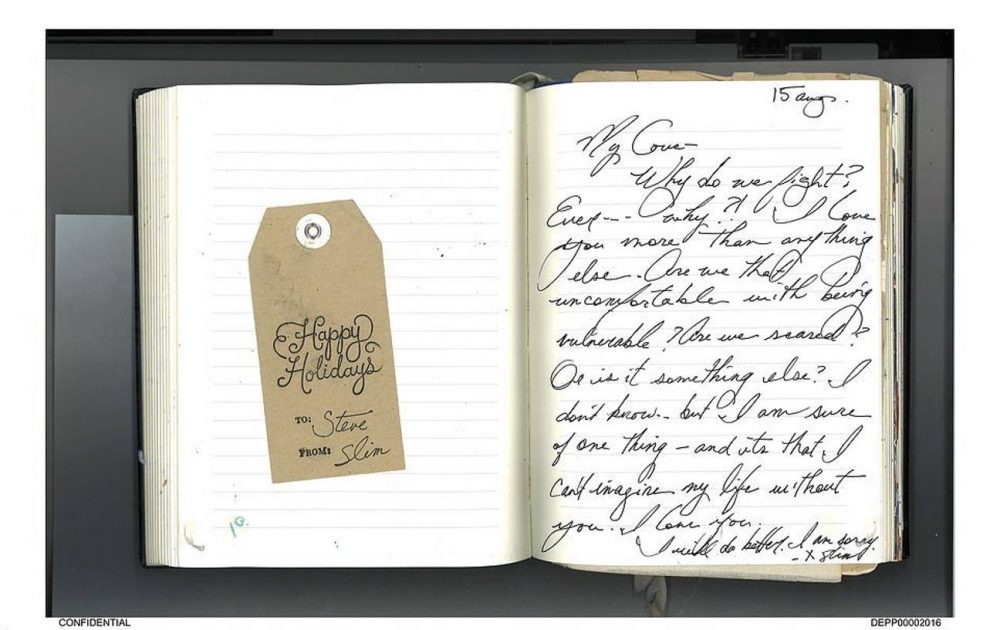 Happy
Holidays
TO: Steve
FROM: Slim
10.
15 aug.
My Love—
Why do we fight?
Ever-- why?! I love
you more than anything
else. Are we that
uncomfortable with being
vulnerable? Are we scared?
Or is it something else? I
don't know. but I am sure
of one thing — and its that I
can't imagine my life without
you. I love you.
I will do better. I am sorry.
- X Slim
CONFIDENTIAL
DEPP00002016